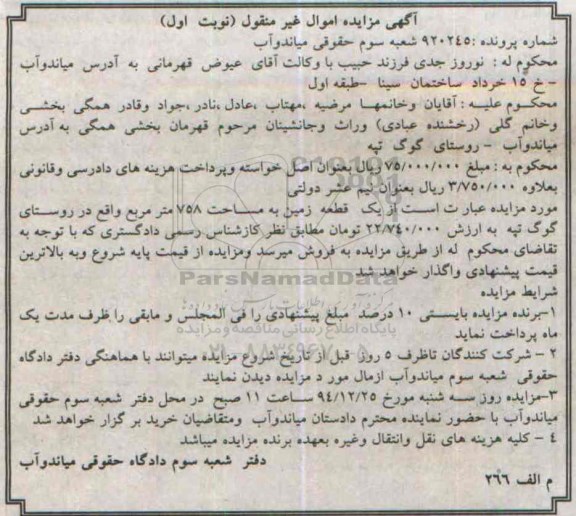 آگهی مزایده اموال غیر منقول (نوبت اول)
شماره پرونده :۹۲۰۲۴۵ شعبه سوم حقوقی میاندوآب
محکوم له : نوروز جدی فرزند حبیب با وکالت آقای عیوض قهرمانی به آدرس میاندوآب
- خ ۱۵ خرداد ساختمان سینا -طبقه اول
محکوم علیه : آقایان وخانمها مرضیه ،مهتاب ،عادل ،نادر ،جواد وقادر همگی بخشی
وخانم گلی (رخشنده عبادی) وراث وجانشینان مرحوم قهرمان بخشی همگی به آدرس
میاندوآب - روستای گوگ تپه
محکوم به : مبلغ ۷۵/۰۰۰/۰۰۰ ریال بعنوان اصل خواسته وپرداخت هزینه های دادرسی وقانونی
بعلاوه ۳/۷۵۰/۰۰۰ ریال بعنوان نیم عشر دولتی
مورد مزایده عبارت است از یک قطعه زمین به مساحت ۷۵۸ متر مربع واقع در روستای
گوگ تپه به ارزش ۲۲/۷۴۰/۰۰۰ تومان مطابق نظر کارشناس رسمی دادگستری که با توجه به
تقاضای محکوم له از طریق مزایده به فروش میرسد ومزایده از قیمت پایه شروع وبه بالاترین
قیمت پیشنهادی واگذار خواهد شد
ParsNamadData
شرایط مزایده
۱-برنده مزایده بایستی ۱۰ درصد مبلغ پیشنهادی را فی المجلس و مابقی را ظرف مدت یک
ماه پرداخت نماید
پایگاه اطلاع رسانی مناقصه و مزایده
۲ - شرکت کنندگان تاظرف ۵ روز قبل از تاریخ شروع مزایده میتوانند با هماهنگی دفتر دادگاه
حقوقی شعبه سوم میاندوآب ازمال مور د مزایده دیدن نمایند
۳-مزایده روز سه شنبه مورخ ۹۴/۱۲/۲۵ ساعت ۱۱ صبح در محل دفتر شعبه سوم حقوقی
میاندوآب با حضور نماینده محترم دادستان میاندوآب ومتقاضیان خرید بر گزار خواهد شد
۴ - کلیه هزینه های نقل وانتقال وغیره بعهده برنده مزایده میباشد
دفتر شعبه سوم دادگاه حقوقی میاندوآب
م الف ۲۶۶